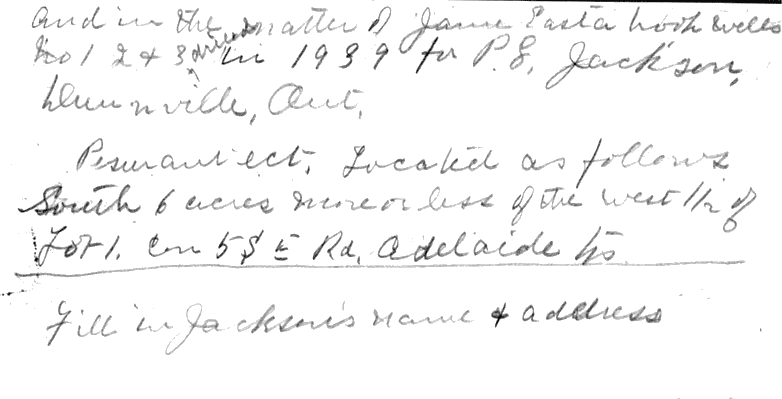 and in the matter of Jane Easta brook wells
No 1 2 & 3 drilled in 1939 for P.S. Jackson,
Dunnville, Ont.
Pesurant ect. Located as follows
South 6 acres more or less of the west 1/2 of
Lot 1. Con 5 S E Rd. Adelaide
Fill in Jackson's name & address